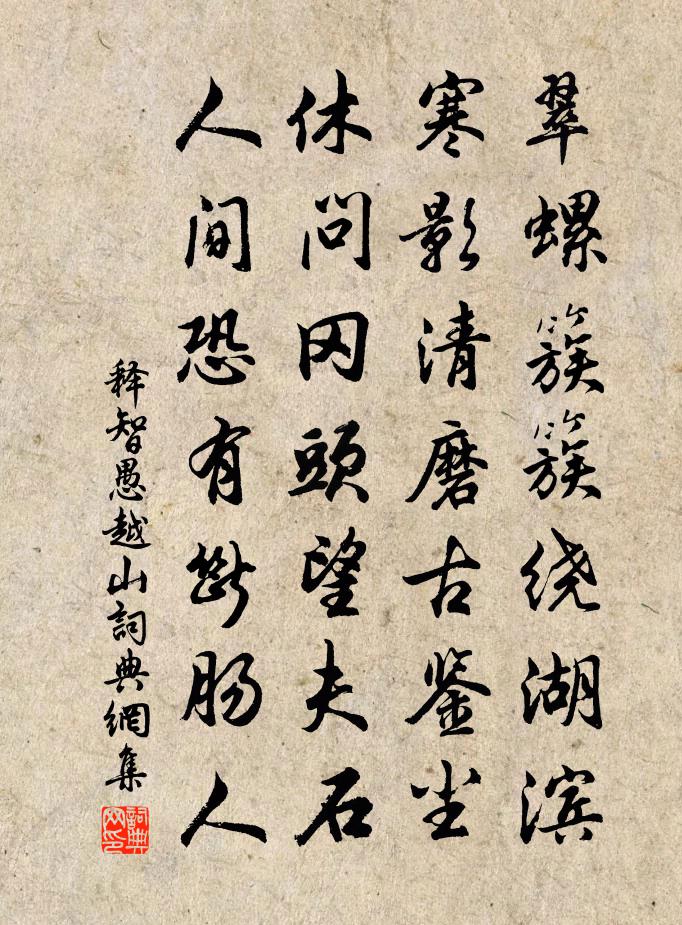 翠螺簇簇绕湖滨
寒影清磨古鉴尘
休問冈頭望夫石
人間恐有断肠人
释智愚越山詞典網集
詞典网印